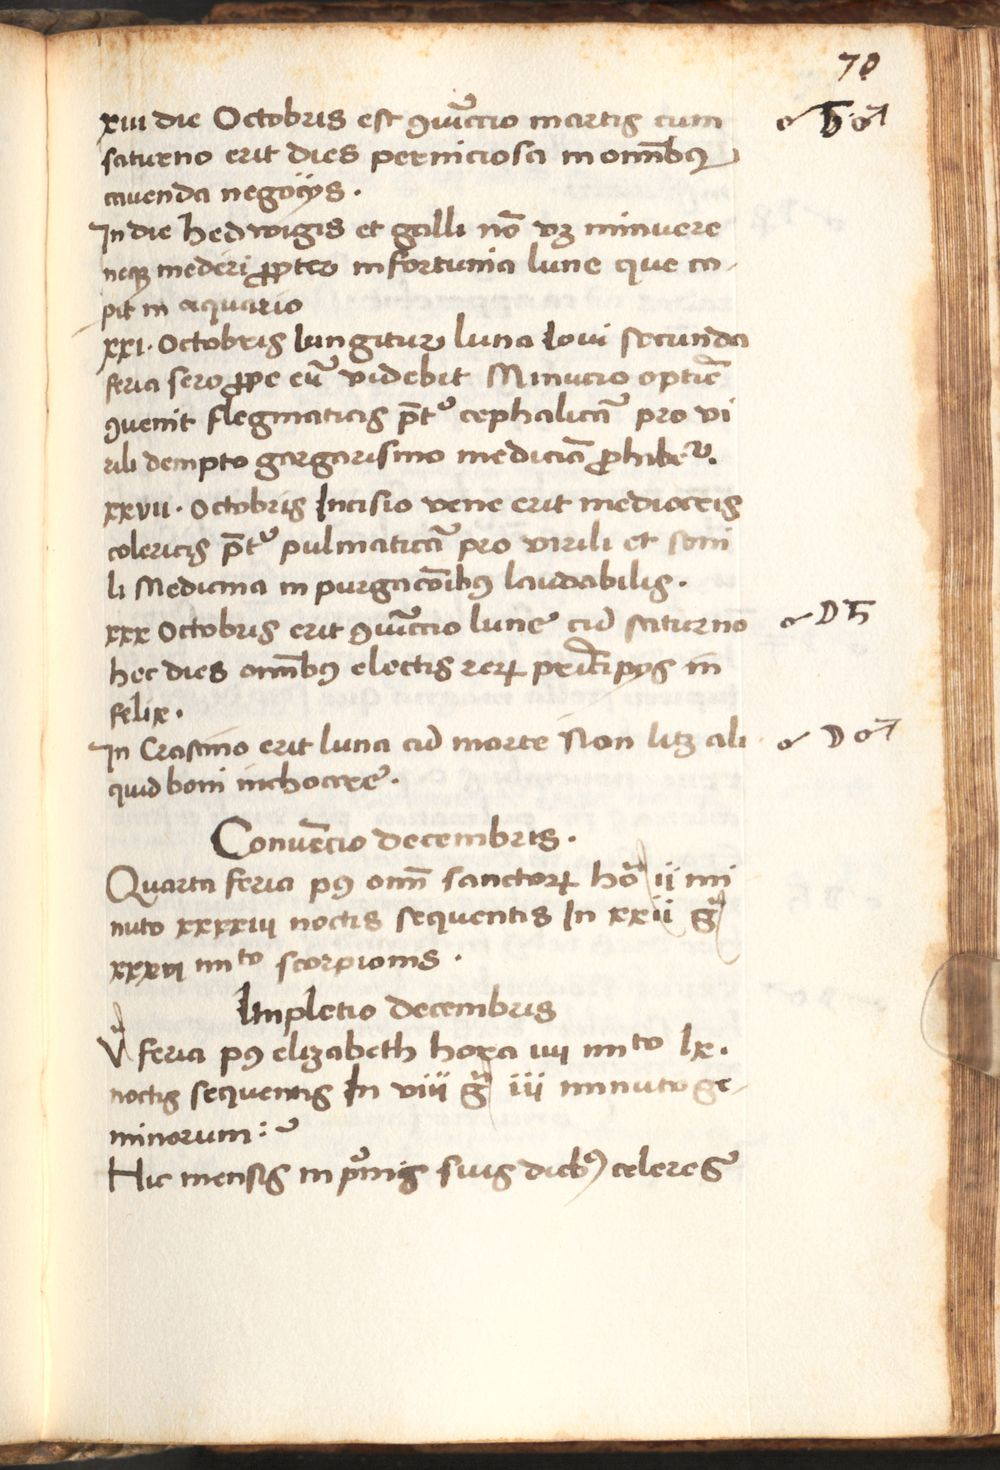 70
xiii die Octobris est ꝯiũccio martis cum ☌ ♄ ♂
saturno erit dies perniciosa in omnibꝰ
cauenda negocijs .
In die hedwigis et galli nõ vꝫ minuere
neqꝫ mederi ꝓpter infortunia lune que ca-
pit in aquario
xxi . Octobris Iungitur luna Ioui secunda
feria sero ꝓpe eũ videbit Minucio optiē
ꝯuenit flegmaticis p̄tꝰ cephalicã pro vi
rili dempto gargarismo medicinã ꝓhibet᷑.
xxvii . Octobris Incisio vene erit mediocris
colericis p̄tꝰ pulmaticã pro virili et seni
li Medicina in purgacõibꝰ laudabilis .
xxx Octobris erit ꝯiũccio lune cũ saturno ☌ ☽ ♄
hec dies omnibꝰ electis reꝝ principijs in
felix .
In Crastino erit luna cũ marte Non litꝫ ali ☌ ☽ ♂
quid boni inchoare .
Conuẽcio decembris .
Quarta feria pꝰ om̄ sanctoꝝ hõa ii mi
nuto xxxxiii noctis sequentis In xxii g̃
xxxvi mi͏ᵗᵒ scorpionis .
Impletio decembris
V̾ feria pꝰ elizabeth hora iiii miᵗᵒ lx .
noctis sequentis In viii g̃ iii minuto ge-
minorum :
Hic mensis in p̾mis suis diebꝰ celeres